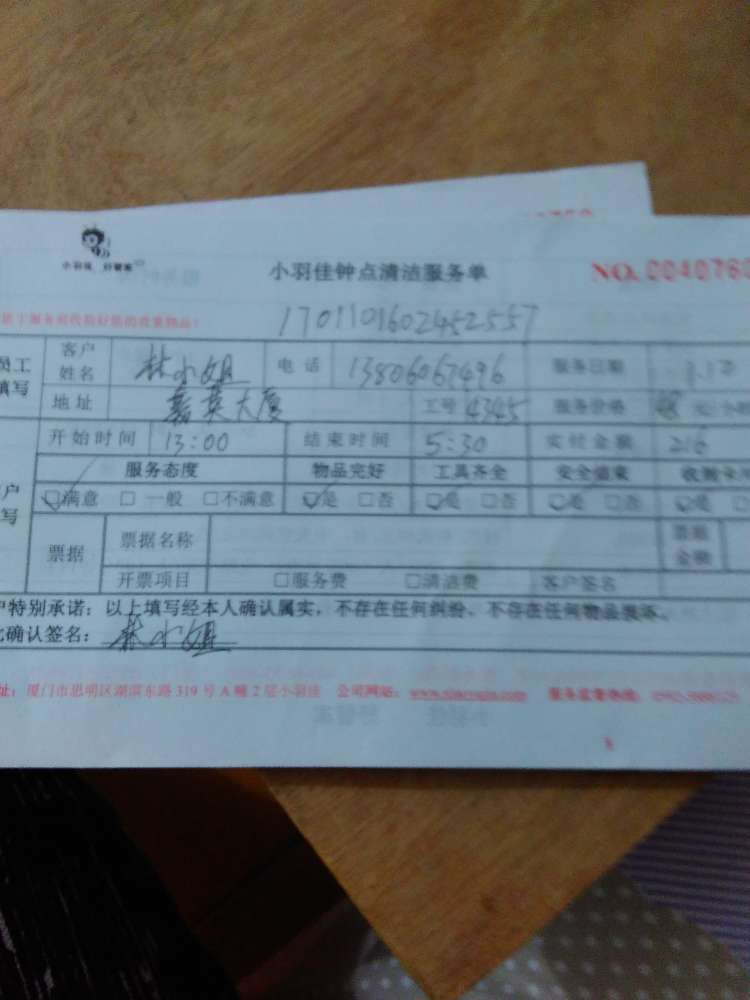 小羽佳 好管家
小羽佳钟点清洁服务单 NO. 0040760
1701101602452557
员工填写 客户姓名 林小姐 电话 13806067496 服务日期
地址 嘉英大厦 工号 4345 服务价格 48
开始时间 13:00 结束时间 5:30 实付金额 216
服务态度 物品完好 工具齐全 安全结束
☑满意 □一般 □不满意 ☑是 □否 ☑是 □否 ☑是 □否 ☑是
票据 票据名称 票据金额
开票项目 □服务费 □清洁费 客户签名
户特别承诺：以上填写经本人确认属实，不存在任何纠纷、不存在任何物品损坏。
此确认签名：林小姐
址：厦门市思明区湖滨东路319号A幢2层小羽佳 公司网站： 服务监督热线：